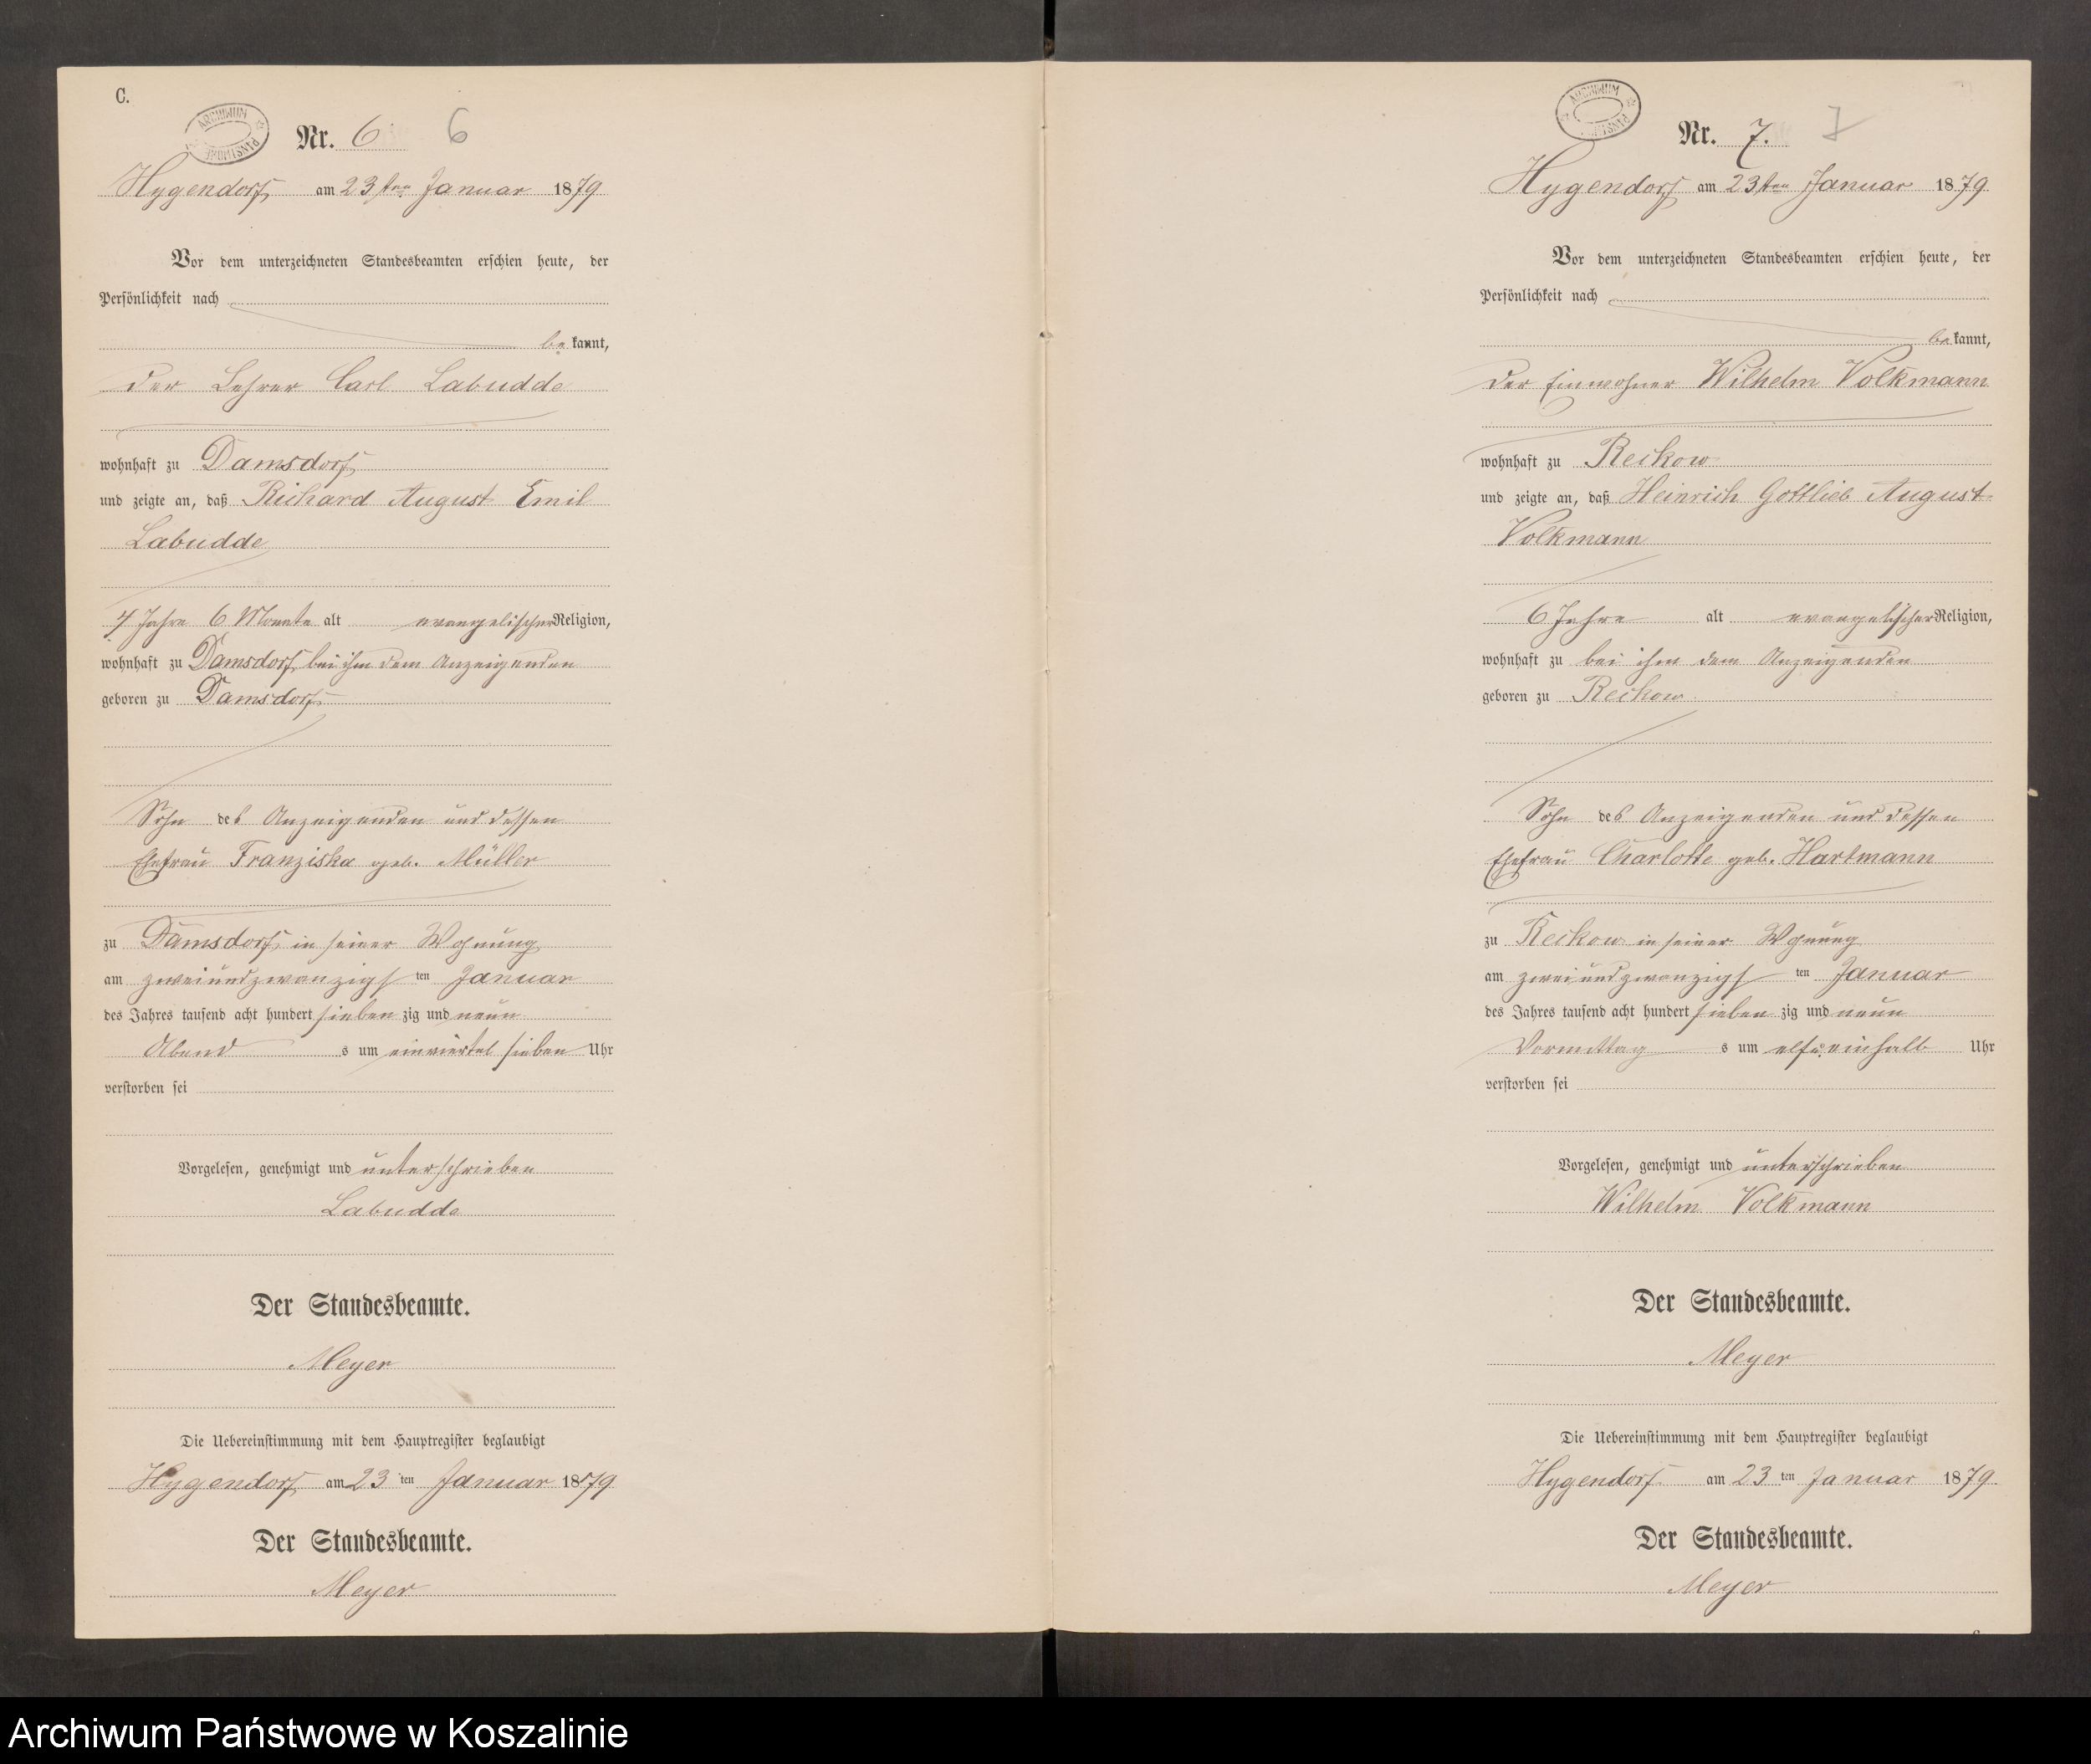 C.
ARCHIWUM PAŃSTWOWE
Nr. 6 6
Hygendorf, am 23ten Januar 1879
Vor dem unterzeichneten Standesbeamten erschien heute, der
Persönlichkeit nach
bekannt,
der Lehrer Carl Labudde
wohnhaft zu Damsdorf,
und zeigte an, daß Richard August Emil
Labudde
7 Jahre 6 Monate alt evangelischer Religion,
wohnhaft zu Damsdorf, bei ihm dem Anzeigenden
geboren zu Damsdorf
Sohn des Anzeigenden und dessen
Ehefrau Franziska geb. Müller
zu Damsdorf, in seiner Wohnung
am zweiundzwanzigsten Januar
des Jahres tausend acht hundert siebenzig und neun
Abends um einviertel sieben Uhr
verstorben sei
Vorgelesen, genehmigt und unterschrieben
Labudde
Der Standesbeamte.
Meyer
Die Uebereinstimmung mit dem Hauptregister beglaubigt
Hygendorf, am 23ten Januar 1879
Der Standesbeamte.
Meyer
ARCHIWUM PAŃSTWOWE
Nr. 7. 7
Hygendorf am 23ten Januar 1879
Vor dem unterzeichneten Standesbeamten erschien heute, der
Persönlichkeit nach
bekannt,
der Einwohner Wilhelm Volkmann
wohnhaft zu Reckow
und zeigte an, daß Heinrich Gottlieb August
Volkmann
6 Jahre alt evangelischer Religion,
wohnhaft zu bei ihm dem Anzeigenden
geboren zu Reckow
Sohn des Anzeigenden und dessen
Ehefrau Charlotte geb. Hartmann
zu Reckow in seiner Wohnung
am zweiundzwanzigsten Januar
des Jahres tausend acht hundert siebenzig und neun
Vormittags um elf u. einhalb Uhr
verstorben sei
Vorgelesen, genehmigt und unterschrieben
Wilhelm Volkmann
Der Standesbeamte.
Meyer
Die Uebereinstimmung mit dem Hauptregister beglaubigt
Hygendorf am 23ten Januar 1879
Der Standesbeamte.
Meyer
Archiwum Państwowe w Koszalinie